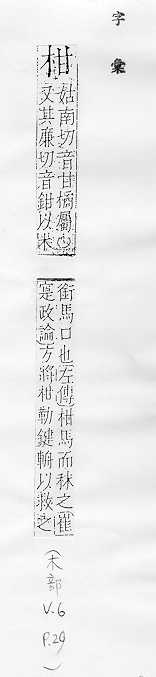 字彙
柑
姑南切音甘橘屬也
又其廉切音鉗以木
銜馬口也左傳柑馬而秣之崔
寔政論方將柑勒鞬輈以救之
(木部
V.6
P.29)